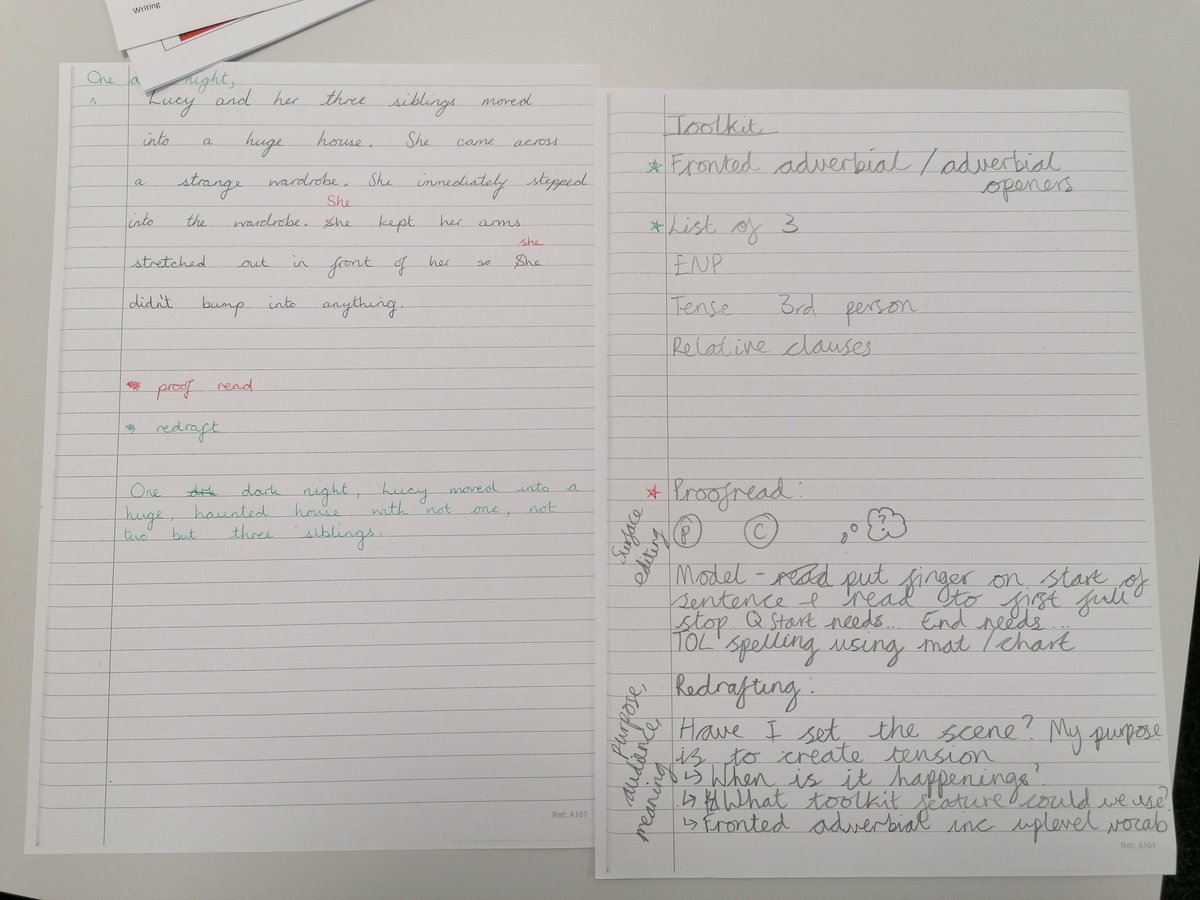 Writing
One a night,
^ Lucy and her three siblings moved
into a huge house. She came across
a strange wardrobe. She immediately stepped
She
into the wardrobe. she kept her arms
she
stretched out in front of her so She
didn't bump into anything.
* proof read
* redraft
One drk dark night, Lucy moved into a
huge, haunted house with not one, not
two but three siblings.
Ref: A101
Toolkit
* Fronted adverbial / adverbial
openers
* List of 3
ENP
Tense 3rd person
Relative clauses
* Proofread:
Surface
editing
P C ?
Model - read put finger on start of
sentence & read to first full
stop. Q Start needs... End needs...
TOL spelling using mat / chart
Redrafting:
Purpose,
audience,
meaning
Have I set the scene? My purpose
is to create tension
↳ When is it happenings?
↳ What toolkit feature could we use?
↳ Fronted adverbial inc. uplevel vocab
Ref: A101